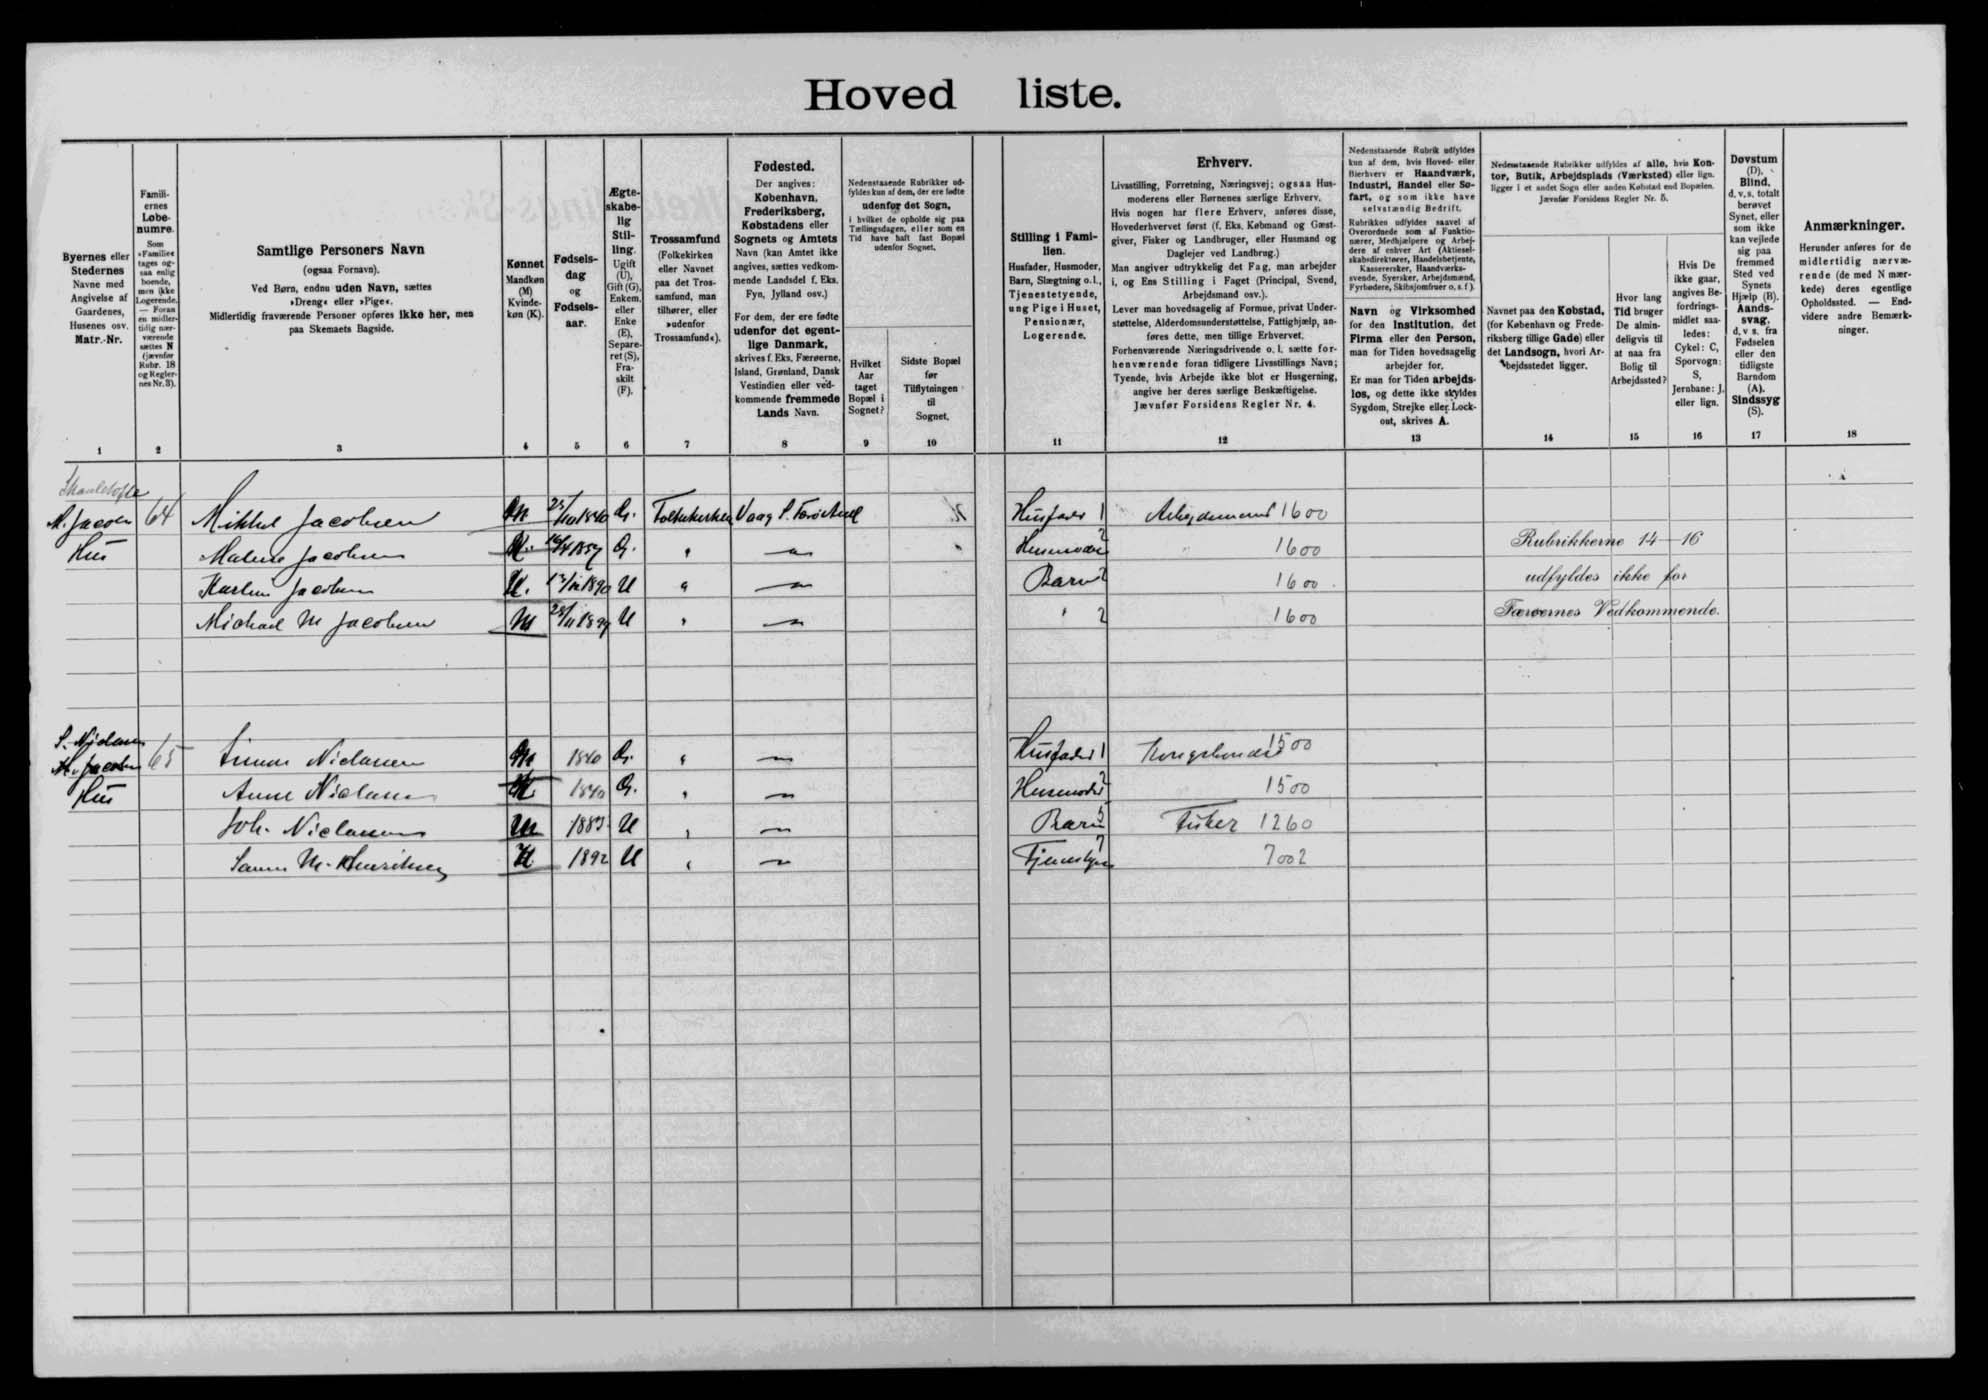 Hoved liste.
Byernes eller
Stedernes
Navne med
Angivelse af
Gaardenes,
Husenes osv.
Matr.-Nr.
1
Famili-
ernes
Løbe-
numre.
Som
»Familie«
tages og-
saa enlig
boende,
men ikke
Logerende.
— Foran
en midler-
tidig nær-
værende
sættes N
(jævnfør
Rubr. 18
og Regler-
nes Nr. 3).
2
Samtlige Personers Navn
(ogsaa Fornavn).
Ved Børn, endnu uden Navn, sættes
»Dreng« eller »Pige«.
Midlertidig fraværende Personer opføres ikke her, men
paa Skemaets Bagside.
3
Kønnet
Mandkøn
(M)
Kvinde-
køn (K).
4
Fødsels-
dag
og
Fødsels-
aar.
5
Ægte-
skabe-
lig
Stil-
ling.
Ugift
(U),
Gift (G),
Enkem.
eller
Enke
(E),
Separe-
ret (S),
Fra-
skilt
(F).
6
Trossamfund
(Folkekirken
eller Navnet
paa det Tros-
samfund, man
tilhører, eller
»udenfor
Trossamfund«).
7
Fødested.
Der angives:
København,
Frederiksberg,
Købstadens eller
Sognets og Amtets
Navn (kan Amtet ikke
angives, sættes vedkom-
mende Landsdel f. Eks.
Fyn, Jylland osv.)
For dem, der ere fødte
udenfor det egent-
lige Danmark,
skrives f. Eks. Færøerne,
Island, Grønland, Dansk
Vestindien eller ved-
kommende fremmede
Lands Navn.
8
Nedenstaaende Rubrikker ud-
fyldes kun af dem, der ere fødte
udenfor det Sogn,
i hvilket de opholde sig paa
Tællingsdagen, eller som en
Tid have haft fast Bopæl
udenfor Sognet.
Hvilket
Aar
taget
Bopæl i
Sognet?
9
Sidste Bopæl
før
Tilflytningen
til
Sognet.
10
Stilling i Fami-
lien.
Husfader, Husmoder,
Barn, Slægtning o.l.,
Tjenestetyende,
ung Pige i Huset,
Pensionær,
Logerende.
11
Erhverv.
Livsstilling, Forretning, Næringsvej; ogsaa Hus-
moderens eller Børnenes særlige Erhverv.
Hvis nogen har flere Erhverv, anføres disse,
Hovederhvervet først (f. Eks. Købmand og Gæst-
giver, Fisker og Landbruger, eller Husmand og
Daglejer ved Landbrug.)
Man angiver udtrykkelig det Fag, man arbejder
i, og Ens Stilling i Faget (Principal, Svend,
Arbejdsmand osv.).
Lever man hovedsagelig af Formue, privat Under-
støttelse, Alderdomsunderstøttelse, Fattighjælp, an-
føres dette, men tillige Erhvervet.
Forhenværende Næringsdrivende o. l. sætte for-
henværende foran tidligere Livsstillings Navn;
Tyende, hvis Arbejde ikke blot er Husgerning,
angive her deres særlige Beskæftigelse.
Jævnfør Forsidens Regler Nr. 4.
12
Nedenstaaende Rubrik udfyldes
kun af dem, hvis Hoved- eller
Bierhverv er Haandværk,
Industri, Handel eller Sø-
fart, og som ikke have
selvstændig Bedrift.
Rubrikken udfyldes saavel af
Overordnede som af Funktio-
nærer, Medhjælpere og Arbej-
dere af enhver Art (Aktiesel-
skabsdirektører, Handelsbetjente,
Kassererske, Haandværks-
svende, Syersker, Arbejdsmænd,
Fyrbødere, Skibsjomfruer o. s. f.).
Navn og Virksomhed
for den Institution, det
Firma eller den Person,
man for Tiden hovedsagelig
arbejder for.
Er man for Tiden arbejds-
løs, og dette ikke skyldes
Sygdom, Strejke eller Lock-
out, skrives A.
13
Nedenstaaende Rubrikker udfyldes af alle, hvis Kon-
tor, Butik, Arbejdsplads (Værksted) eller lign.
ligger i et andet Sogn eller anden Købstad end Bopælen.
Jævnfør Forsidens Regler Nr. 5.
Navnet paa den Købstad,
(for København og Frede-
riksberg tillige Gade) eller
det Landsogn, hvori Ar-
bejdsstedet ligger.
14
Hvor lang
Tid bruger
De almin-
deligvis til
at naa fra
Bolig til
Arbejdssted?
15
Hvis De
ikke gaar,
angives Be-
fordrings-
midlet saa-
ledes:
Cykel: C,
Sporvogn:
S,
Jernbane: J.
eller lign.
16
Døvstum
(D),
Blind,
d. v. s. totalt
berøvet
Synet, eller
som ikke
kan vejlede
sig paa
fremmed
Sted ved
Synets
Hjælp (B).
Aands-
svag,
d. v. s. fra
Fødselen
eller den
tidligste
Barndom
(A).
Sindssyg
(S).
17
Anmærkninger.
Herunder anføres for de
midlertidig nærvæ-
rende (de med N mær-
kede) deres egentlige
Opholdssted. — End-
videre andre Bemærk-
ninger.
18
M. Jacobs 64 Mikkel Jacobsen M 1840 G. Folkekirken Vaag S. Færøerne Husfader 1 Arbejdsmand 1600
Hus Malene Jacobsen K. G. " Husmoder 2 1600 Rubrikkerne 14-16
Jacobsen K. 1890 U " Barn 2 1600 udfyldes ikke for
Michael M Jacobsen M U " " 2 1600 Færøernes Vedkommende.
S. Niclasen
65 Simon Niclasen M 1840 G. " Husfader 1 Kongsbonde 1500
Hus Anne Niclasen K 1840 G. " Husmoder 2 1500
Joh. Niclasen M U " Barn 5 Fisker 1260
Sanne M. K 1892 U " 7 7002